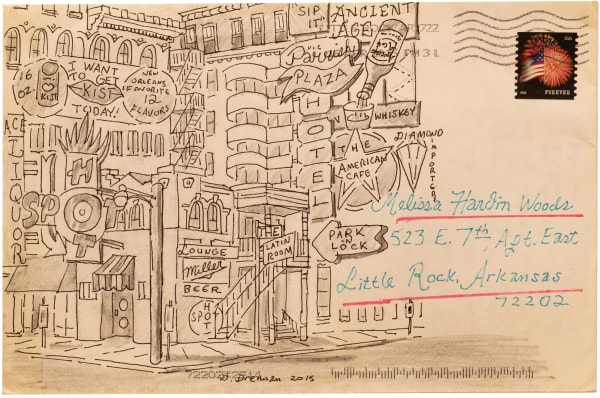 "SIP IT!"
ANCIENT
AGE
722
PM 3 L
VIC
PLAZA
HOTEL
WHISKEY
THE
AMERICAN
CAFE
DIAMOND
IMPORTER
PARK
N
LOCK
16
OZ.
KIST
I WANT
TO GET
KIST
TODAY!
NEW
ORLEANS
FAVORITE
12
FLAVORS
ACE
LIQUOR
HOT
SPOT
LOUNGE
Miller
BEER
HOT
SPOT
THE
LATIN
ROOM
D. Drennan 2015
USA
FOREVER
Melissa Hardin Woods
523 E. 7th, Apt. East
Little Rock, Arkansas
72202